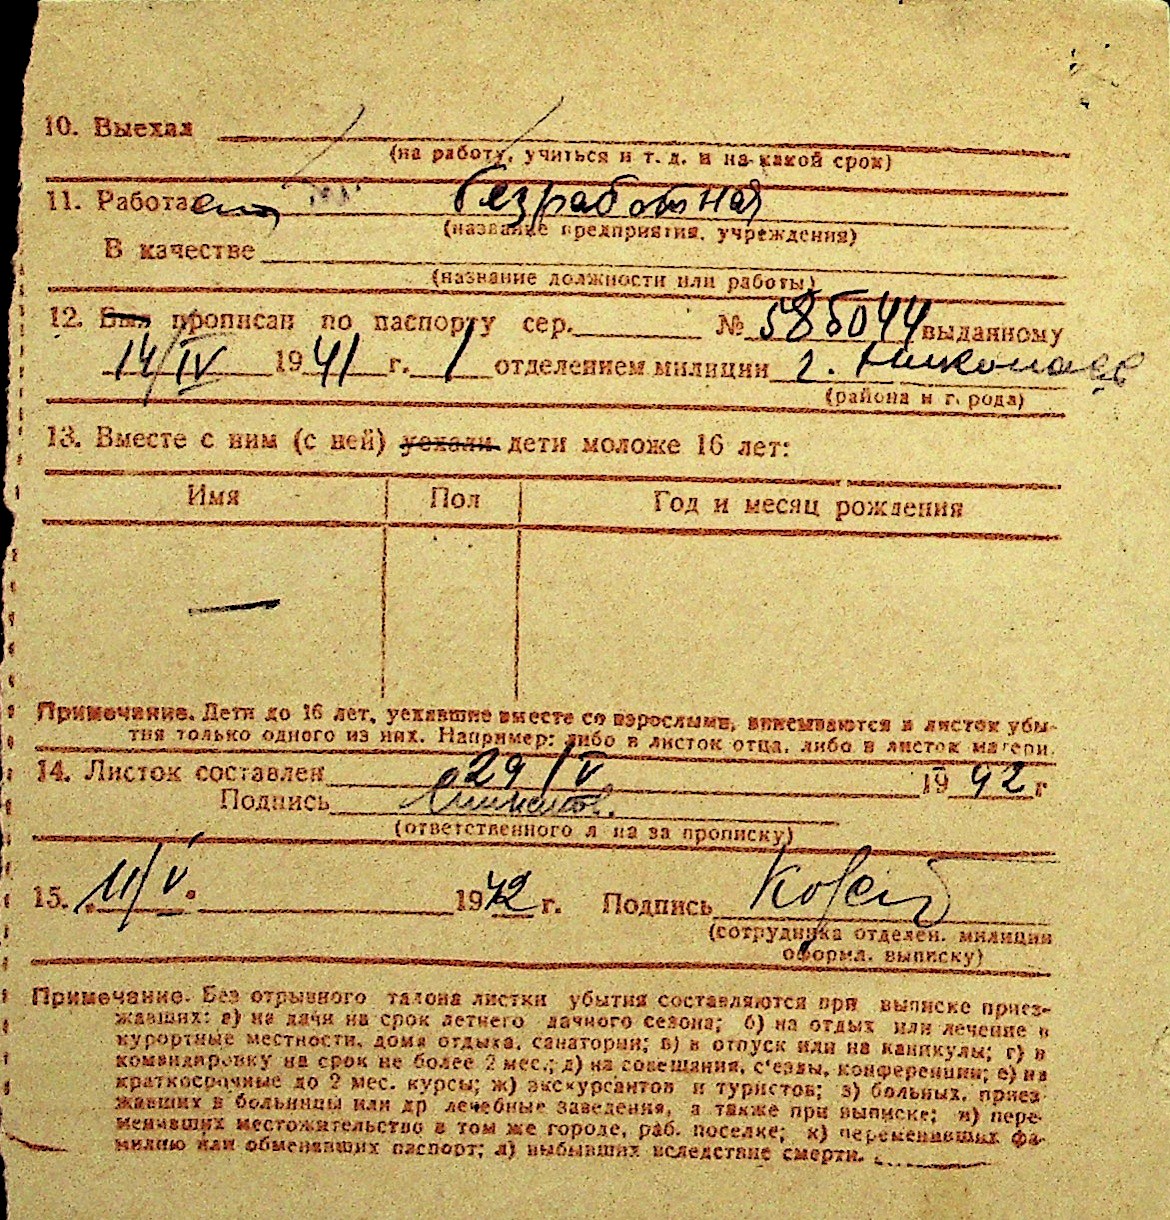 10. Выехал
(на работу, учиться и т. д. и на какой срок)
11. Работает безработная
(название предприятия, учреждения)
В качестве
(название должности или работы)
12. Был прописан по паспорту сер. № 585044 выданному
14/IV 1941 г. 1 отделением милиции г. Николаев
(района и города)
13. Вместе с ним (с ней) уехали дети моложе 16 лет:
Имя Пол Год и месяц рождения
—
Примечание. Дети до 16 лет, уехавшие вместе со взрослыми, вписываются в листок убы-
тия только одного из них. Например: либо в листок отца, либо в листок матери.
14. Листок составлен 29/V 1942 г
Подпись
(ответственного л на за прописку)
15. 11/V. 1942 г. Подпись
(сотрудника отделен. милиции
оформл. выписку)
Примечание. Без отрывного талона листки убытия составляются при выписке приез-
жавших: а) на дачи на срок летнего дачного сезона; б) на отдых или лечение в
курортные местности, дома отдыха, санатории; в) в отпуск или на каникулы; г) в
командировку на срок не более 2 мес.; д) на совещания, с'езды, конференции; е) на
краткосрочные до 2 мес. курсы; ж) экскурсантов и туристов; з) больных, приез-
жавших в больницы или др лечебные заведения, а также при выписке; и) пере-
менивших местожительство в том же городе, раб. поселке; к) переменивших фа-
милию или обменявших паспорт; л) выбывших вследствие смерти.